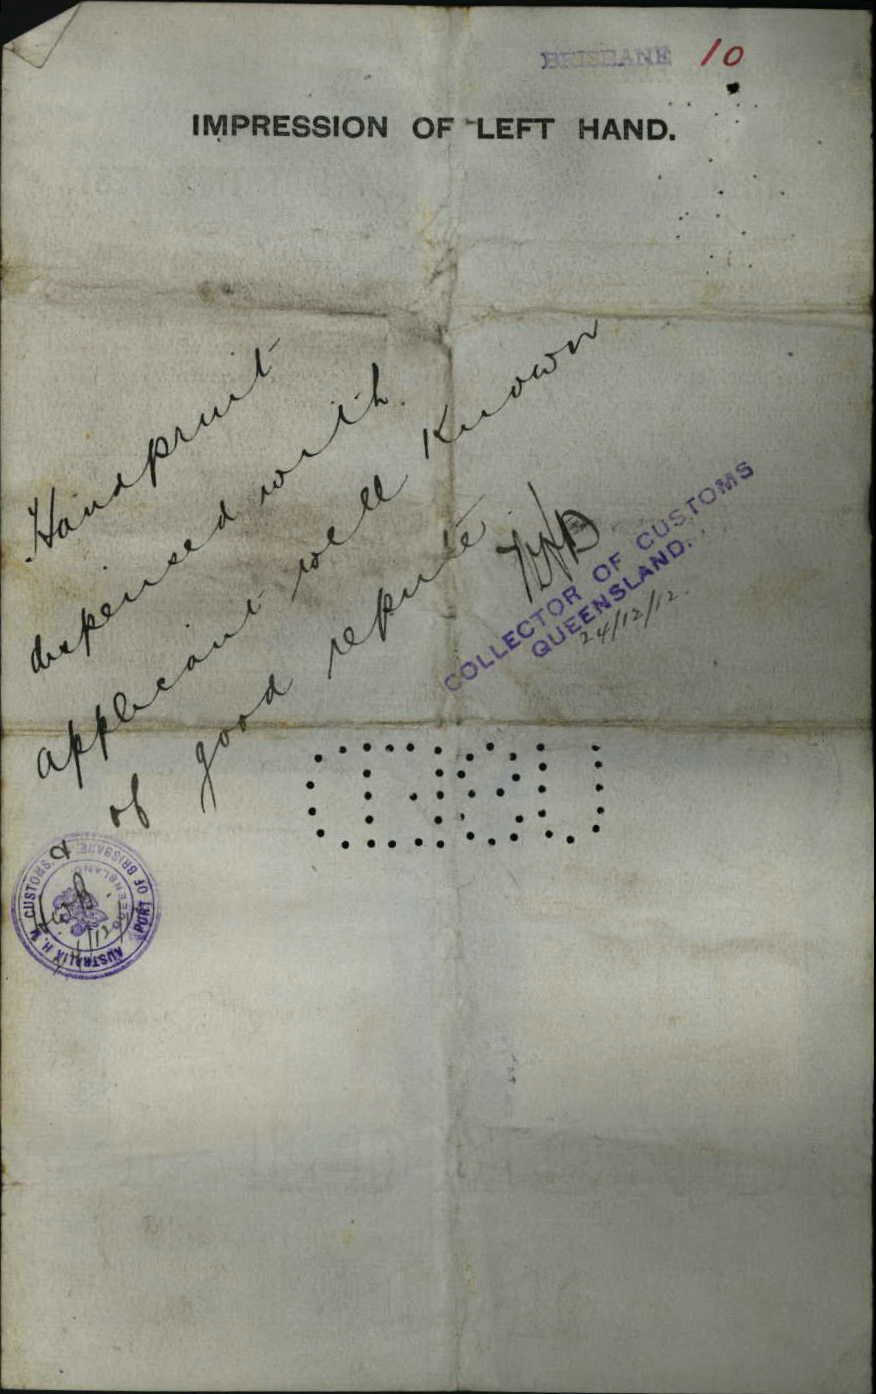 BRISBANE 10
IMPRESSION OF LEFT HAND.
Handprint
dispensed with.
applicant well known
& of good repute
COLLECTOR OF CUSTOMS
QUEENSLAND.
24/12/12.
H.M. CUSTOMS. PORT OF BRISBANE
QUEENSLAND
AUSTRALIA